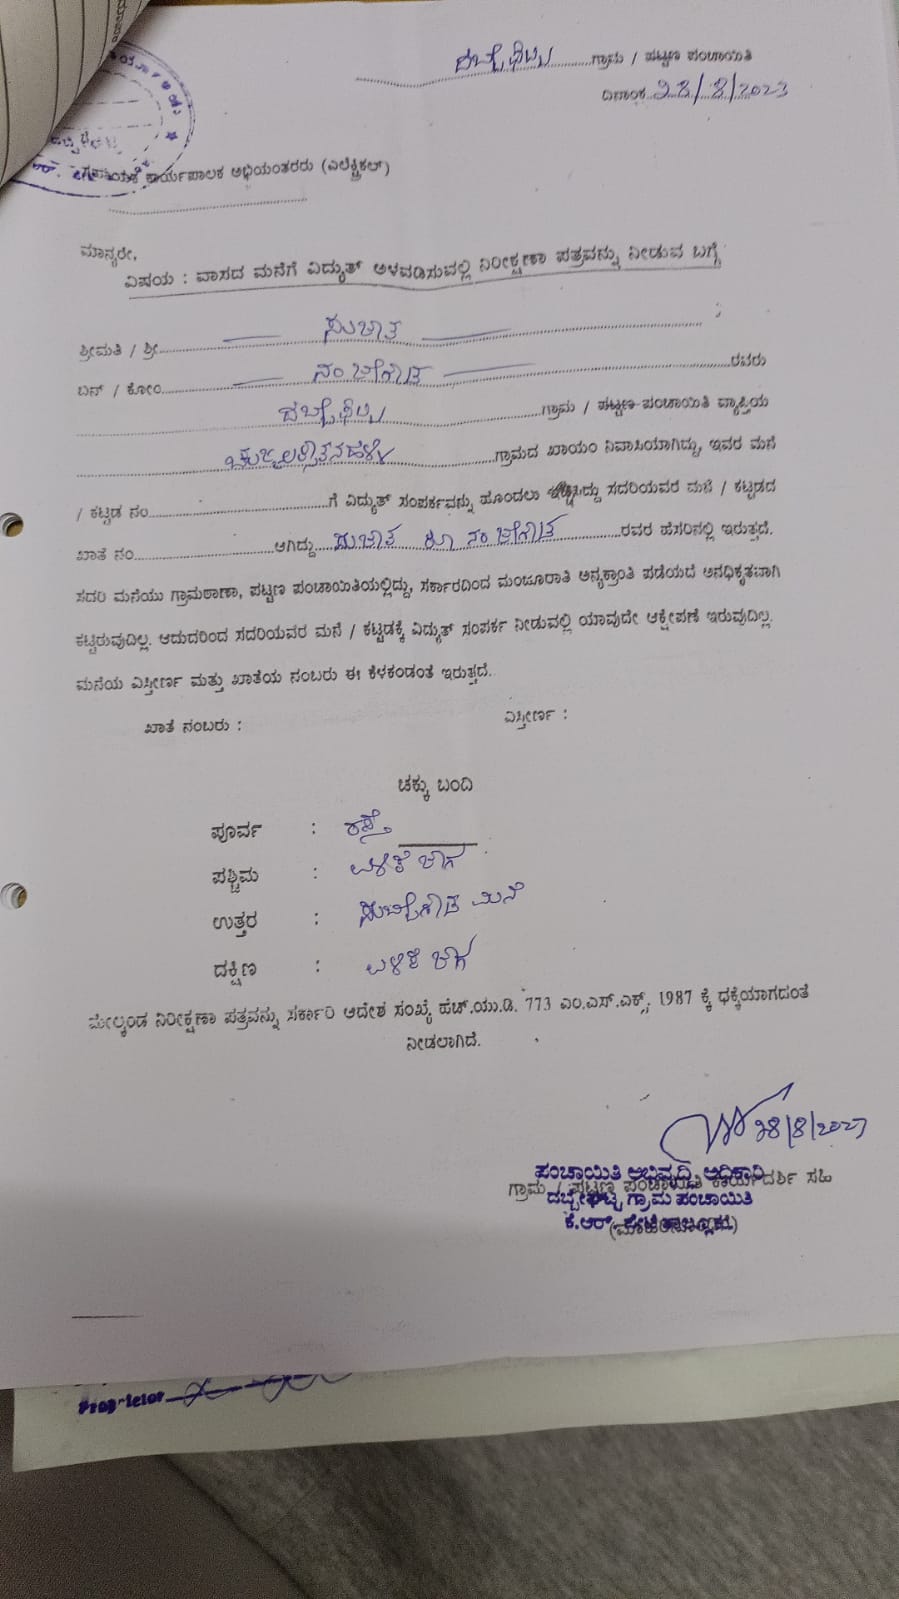 ಗ್ರಾಮ / ಪಟ್ಟಣ ಪಂಚಾಯಿತಿ
ದಿನಾಂಕ 28/8/2023
ಕಾರ್ಯಪಾಲಕ ಅಭಿಯಂತರರು (ಎಲೆಕ್ಟ್ರಿಕಲ್)
ಮಾನ್ಯರೇ,
ವಿಷಯ : ವಾಸದ ಮನೆಗೆ ವಿದ್ಯುತ್ ಅಳವಡಿಸುವಲ್ಲಿ ನಿರೀಕ್ಷಣಾ ಪತ್ರವನ್ನು ನೀಡುವ ಬಗ್ಗೆ
ಶ್ರೀಮತಿ / ಶ್ರೀ ಸುಜಾತ
ಬಿನ್ / ಕೋಂ ನಂಜೇಗೌಡ ರವರು
ಗ್ರಾಮ / ಪಟ್ಟಣ ಪಂಚಾಯಿತಿ ವ್ಯಾಪ್ತಿಯ
ಗ್ರಾಮದ ಖಾಯಂ ನಿವಾಸಿಯಾಗಿದ್ದು, ಇವರ ಮನೆ
/ ಕಟ್ಟಡ ನಂ ಗೆ ವಿದ್ಯುತ್ ಸಂಪರ್ಕವನ್ನು ಹೊಂದಲು ಸದರಿಯವರ ಮನೆ / ಕಟ್ಟಡದ
ಖಾತೆ ನಂ ಆಗಿದ್ದು ಸುಜಾತ ಕೋಂ ನಂಜೇಗೌಡ ರವರ ಹೆಸರಿನಲ್ಲಿ ಇರುತ್ತದೆ.
ಸದರಿ ಮನೆಯು ಗ್ರಾಮಠಾಣಾ, ಪಟ್ಟಣ ಪಂಚಾಯಿತಿಯಲ್ಲಿದ್ದು, ಸರ್ಕಾರದಿಂದ ಮಂಜೂರಾತಿ ಅನ್ಯಕ್ರಾಂತಿ ಪಡೆಯದೆ ಅನಧಿಕೃತವಾಗಿ
ಕಟ್ಟಿರುವುದಿಲ್ಲ. ಆದುದರಿಂದ ಸದರಿಯವರ ಮನೆ / ಕಟ್ಟಡಕ್ಕೆ ವಿದ್ಯುತ್ ಸಂಪರ್ಕ ನೀಡುವಲ್ಲಿ ಯಾವುದೇ ಆಕ್ಷೇಪಣೆ ಇರುವುದಿಲ್ಲ.
ಮನೆಯ ವಿಸ್ತೀರ್ಣ ಮತ್ತು ಖಾತೆಯ ನಂಬರು ಈ ಕೆಳಕಂಡಂತೆ ಇರುತ್ತದೆ.
ಖಾತೆ ನಂಬರು : ವಿಸ್ತೀರ್ಣ :
ಚಕ್ಕು ಬಂದಿ
ಪೂರ್ವ : ರಸ್ತೆ
ಪಶ್ಚಿಮ : ಬಳಕೆ ಜಾಗ
ಉತ್ತರ : ಮನೆ
ದಕ್ಷಿಣ : ಬಳಕೆ ಜಾಗ
ಮೇಲ್ಕಂಡ ನಿರೀಕ್ಷಣಾ ಪತ್ರವನ್ನು ಸರ್ಕಾರಿ ಆದೇಶ ಸಂಖ್ಯೆ ಹೆಚ್.ಯು.ಡಿ. 773 ಎಂ.ಎಸ್.ಎಕ್ಸ್. 1987 ಕ್ಕೆ ಧಕ್ಕೆಯಾಗದಂತೆ
ನೀಡಲಾಗಿದೆ.
28/8/2023
ಪಂಚಾಯಿತಿ ಅಭಿವೃದ್ಧಿ ಅಧಿಕಾರಿ
ಗ್ರಾಮ / ಪಟ್ಟಣ ಪಂಚಾಯಿತಿ ಕಾರ್ಯದರ್ಶಿ ಸಹಿ
ಗ್ರಾಮ ಪಂಚಾಯಿತಿ
Proprietor